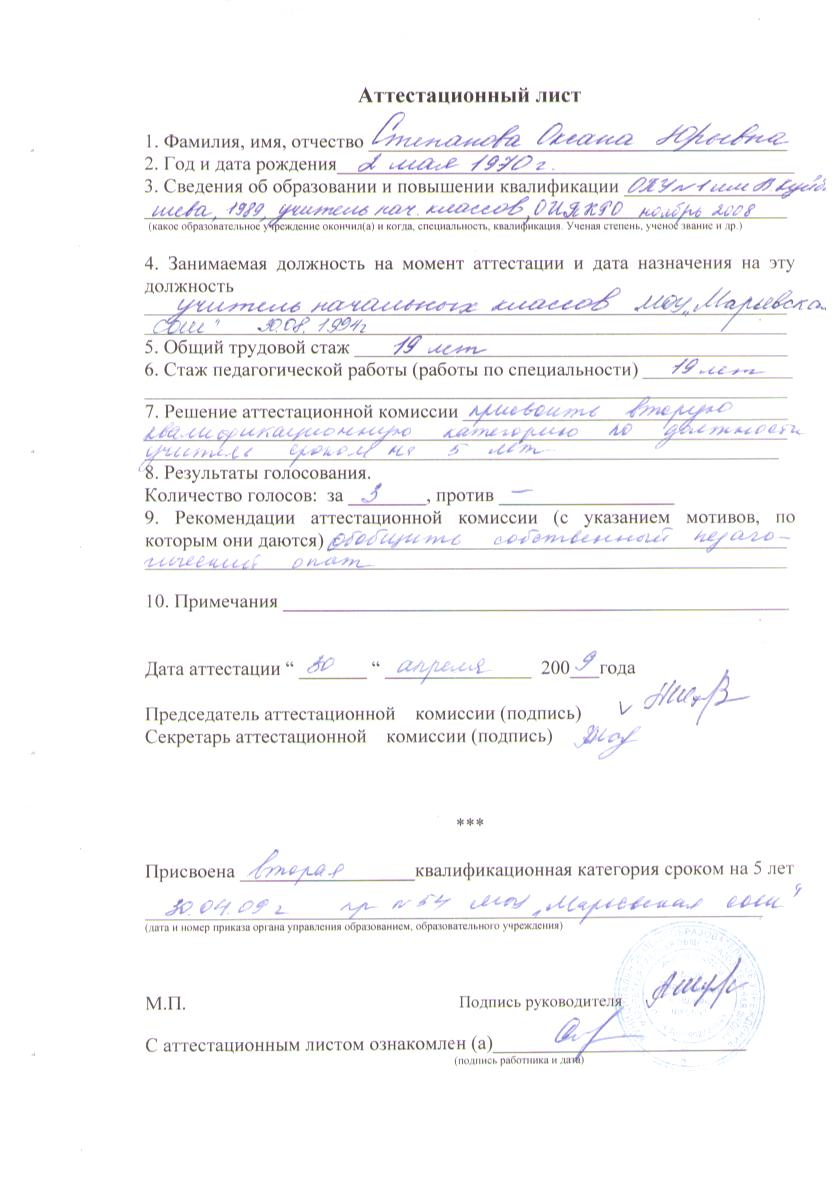 Аттестационный лист
1. Фамилия, имя, отчество Степанова Оксана Юрьевна
2. Год и дата рождения 2 мая 1970 г.
3. Сведения об образовании и повышении квалификации ОПУ №1 им В Куйбы
шева, 1989, учитель нач. классов, ОИПКРО ноябрь 2008
(какое образовательное учреждение окончил(а) и когда, специальность, квалификация. Ученая степень, ученое звание и др.)
4. Занимаемая должность на момент аттестации и дата назначения на эту
должность
учитель начальных классов МОУ „Марьевская
сош" 30.08. 1994г
5. Общий трудовой стаж 19 лет
6. Стаж педагогической работы (работы по специальности) 19 лет
7. Решение аттестационной комиссии присвоить вторую
квалификационную категорию по должности
учитель сроком на 5 лет
8. Результаты голосования.
Количество голосов: за 3, против —
9. Рекомендации аттестационной комиссии (с указанием мотивов, по
которым они даются) обобщить собственный педаго-
гический опыт
10. Примечания
Дата аттестации “ 30 “ апреля 2009 года
Председатель аттестационной комиссии (подпись)
Секретарь аттестационной комиссии (подпись)
***
Присвоена вторая квалификационная категория сроком на 5 лет
30.04.09 г пр №54 МОУ „Марьевская сош"
(дата и номер приказа органа управления образованием, образовательного учреждения)
М.П. Подпись руководителя
С аттестационным листом ознакомлен (а)
(подпись работника и дата)